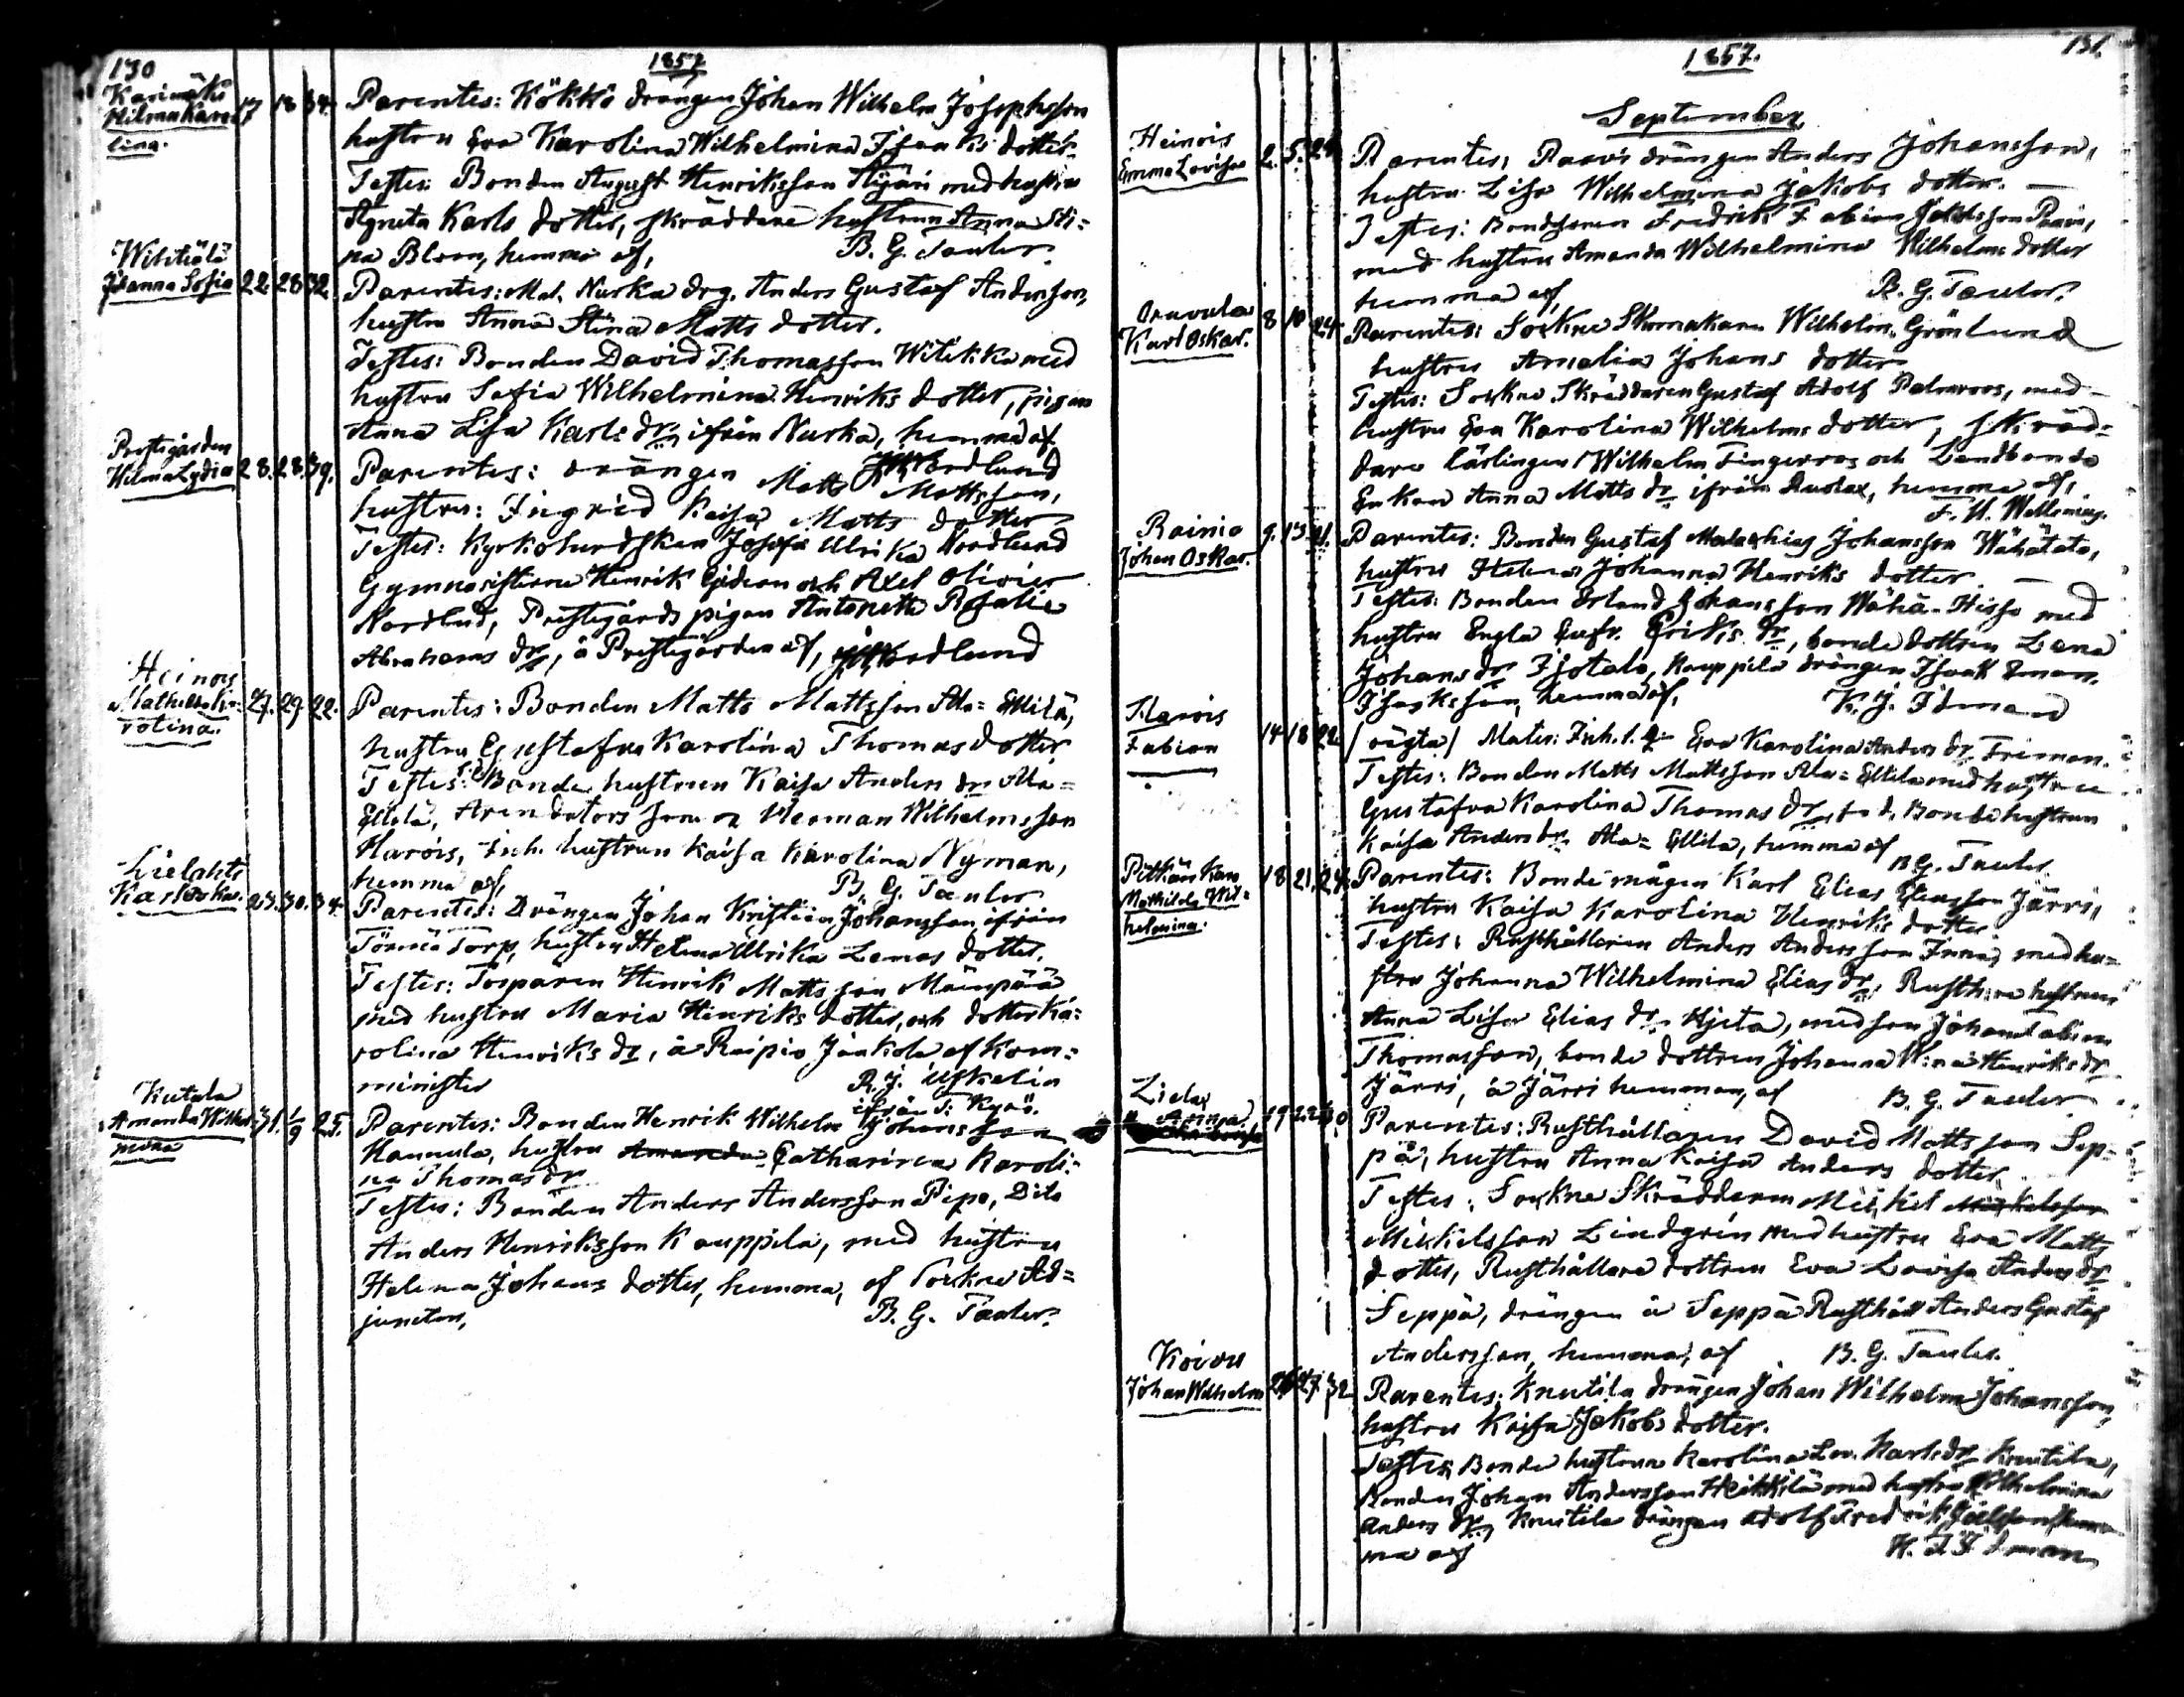 130
1857
Karimäki
Hilma Karo=
lina.
17 18 34.
Parentes: Kökkö drängen Johan Wilhelm Josephsson
hustru Eva Karolina Wilhelmina Isaaks dotter
Testes: Bonden August Henriksson Äijäri med hustru
Agneta Karls dotter, skräddare hustrun Anna Sti=
na Bloom, hemma af, B. G. Tauler.
Johanna Sofia 22. 28 32.
Parentes: Nurka drg. Anders Gustaf Andersson,
hustru Anna Stina Matts dotter.
Testes: Bonden David Thomasson Witikka med
hustru Sofia Wilhelmina Henriks dotter, pigan
Anna Lisa Karls dr, ifrån Nurka, hemma af
Nordlund
Prestgården
Hilma Lydia 28. 28. 39.
Parentes: drängen Matts Mattsson,
hustru: Ingrid Kaisa Matts dotter
Testes: Kyrkoherdskan Josefa Ulrika Nordlund
Gymnasisterne Henrik Gideon och Axel Olivier
Nordlund, Prestegårds pigan Antonetta Rosalia
Abrahams dr, å Prestegården af, Nordlund
Heinois
Mathilda Ka=
rolina.
27. 29. 22.
Parentes: Bonden Matts Mattsson Ala=Ellilä,
hustru Gustafva Karolina Thomas dotter
Testes: f. d. Bonde hustrun Kaisa Anders dr Ala=
Ellilä, Arendators sonen Herman Wilhelmsson
Harois, Inh. hustrun Kaisa Karolina Nyman,
hemma af, B. G. Tauler
Lielahti
Karl Oskar. 23. 30. 34.
Parentes: Drängen Johan Kristian Johansson ifrån
Torp, hustru Helena Ulrika Lenas dotter.
Testes: Torparen Henrik Mattsson Mäenpää
med hustru Maria Henriks dotter, och dotter Ka=
rolina Henriks dr, å Raipio Jaakola af Kom=
minister R. J. Uskelin
ifrån T: Kyrö.
Kutala
Amanda Wilhel=
mina
31. 1/9 25.
Parentes: Bonden Henrik Wilhelm Johansson
Hannula, hustru Amanda Catharina Karoli=
na Thomas dr
Testes: Bonden Anders Andersson Pipo, Dito
Anders Henriksson Kauppila, med hustru
Helena Johans dotter, hemma, af Sockne Ad=
juncten, B. G. Tauler.
131.
1857.
September.
Heinois
Emma Lovisa 2. 5. 24.
Parentes: drängen Anders Johansson,
hustru Lisa Wilhelmina Jakobs dotter. —
Testes: Bondesonen Fredrik Fabian Jakobsson
med hustru Amanda Wilhelmina Wilhelms dotter
hemma af, B. G. Tauler.
Karl Oskar. 8 10 24.
Parentes: Sockne Skomakare Wilhelm Grönlund
hustru Amalia Johans dotter
Testes: Sockne Skräddaren Gustaf Adolf Palmroos, med
hustru Eva Karolina Wilhelms dotter, skräd=
dare lärlingen Wilhelm Fingerroos och Landbonde
Enkan Anna Matts dr ifrån, hemma af,
Rainio
Johan Oskar. 9. 13.
Parentes: Bonden Gustaf Malachias Johansson Wähätalo,
hustru Helena Johanna Henriks dotter. —
Testes: Bonden Erland Johansson Wähä-Hisso med
hustru Engla Eufr. Eriks dr, bonde dottren Lena
Johans dr Isotalo, Kauppila drängen Isaak Eman.
Isaksson, hemma af, K. J. Idman
Harois
Fabian 14 18 22
(oägta) Mater: Inh. Eva Karolina Anders dr Friman.
Testes: Bonden Matts Mattsson Ala=Ellilä med hustru
Gustafva Karolina Thomas dr, f. d. Bonde hustrun
Kaisa Anders dr Ala=Ellilä, hemma af B. G. Tauler
Mathilda Wil=
helmina.
18 21. 24.
Parentes: Bondemågen Karl Elias Eliasson Järri,
hustru Kaisa Karolina Henriks dotter
Testes: Rusthållaren Anders Andersson med hu=
stru Johanna Wilhelmina Elias dr, Rusth:re hustrun
Anna Lisa Elias dr Hjeta, med son Johan Fabian
Thomasson, bonde dottren Johanna W:na Henriks dr
Järri, å Järri hemman, af B. G. Tauler
Anna 19 22 40
Parentes: Rusthållaren David Mattsson Sep=
pä, hustru Anna Kaisa Anders dotter
Testes: Sockne Skräddaren Mickel Mickelsson
Mickelsson Lindgrén med hustru Eva Matts
dotter, Rusthållare dottren Eva Lovisa Anders dr
Seppä, drängen å Seppä Rusthåll Anders Gustaf
Andersson, hemma, af B. G. Tauler.
Koivu
Johan Wilhelm 26 27 32
Parentes: Knutila drängen Johan Wilhelm Johansson,
hustru Kaisa Jakobs dotter.
Testes: Bonde hustrun Karolina Lov. Karls dr Knutila,
Bonden Johan Andersson Heikkilä med hustru Wilhelmina
Anders dr, Knutila drängen Adolf Fredrik
ma af K. J. Idman